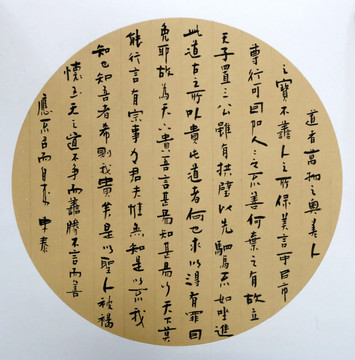 道者萬物之奧善人
之寶不善人之所保美言可以市
尊行可以加人人之不善何棄之有故立
天子置三公雖有拱璧以先駟馬不如坐進
此道古之所以貴此道者何也求以得有罪以
免耶故為天下貴吾言甚易知甚易以天下莫
能行言有宗事有君夫惟無知是以不我
知也知吾者希則我貴矣是以聖人被褐
懷玉天之道不爭而善勝不言而善
應不召而自來 申泰